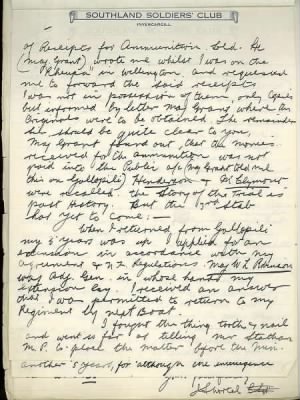 SOUTHLAND SOLDIERS' CLUB
INVERCARGILL
of Receipts for Ammunition Sold. He
(Maj Grant) wrote me whilst I was on the
in Wellington, and requested
me to forward the said receipts
I was not in possession of them, only Copies
but informed by letter Maj Grant where the
Originals were to be obtained. The remainder
should be quite clear to you,
Maj Grant found out, that the monies
received for the ammunition was not
paid into the Public a/c (Maj Grant told me
this on Gallipoli) Henderson &
were recalled. the Story of the Trial is
past History. But the
had yet to come:—
When I returned from Gallipoli
my 5 years was up I applied for an
extension in accordance with my
Agreement & N.Z. Regulations. Maj W. L. Robinson
was Adj Gen. in whose hands my
extension lay. I received an answer
that I was permitted to return to my
Regiment by next Boat.
I fought the thing tooth & nail
and went so far as telling Mr Statham
M.P. to place the matter before the Min.
another 5 years, for although one